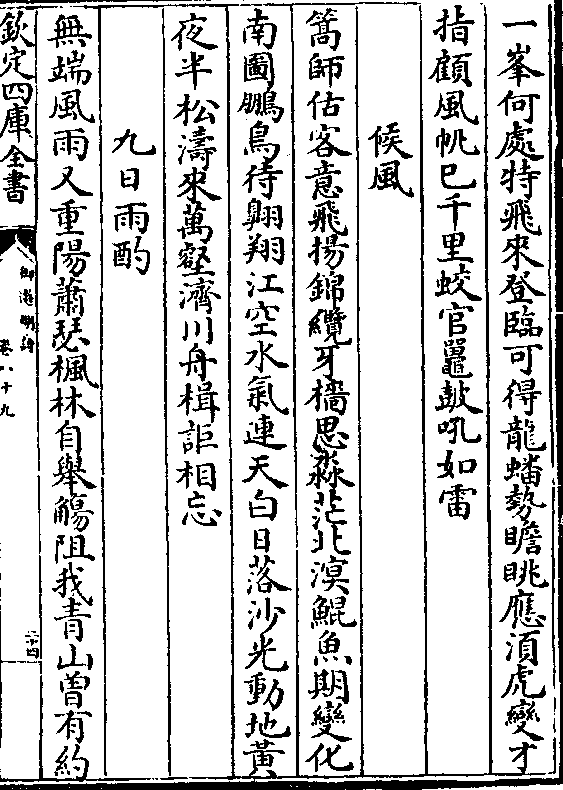 一峯何處特飛來登臨可得龍蟠勢瞻眺應湏虎變才
指顧風帆已千里蛟宫鼉鼓吼如雷
候風
篙師估客意飛揚錦纜牙檣思淼茫北溟鯤魚期變化
南圖鵬鳥待翺翔江空水氣連天白日落沙光動地黄
夜半松濤來萬壑濟川舟楫詎相忘
九日雨酌
無端風雨又重陽蕭瑟楓林自舉觴阻我青山曽有約
欽定四庫全書
御選明詩
卷八十九
二十四